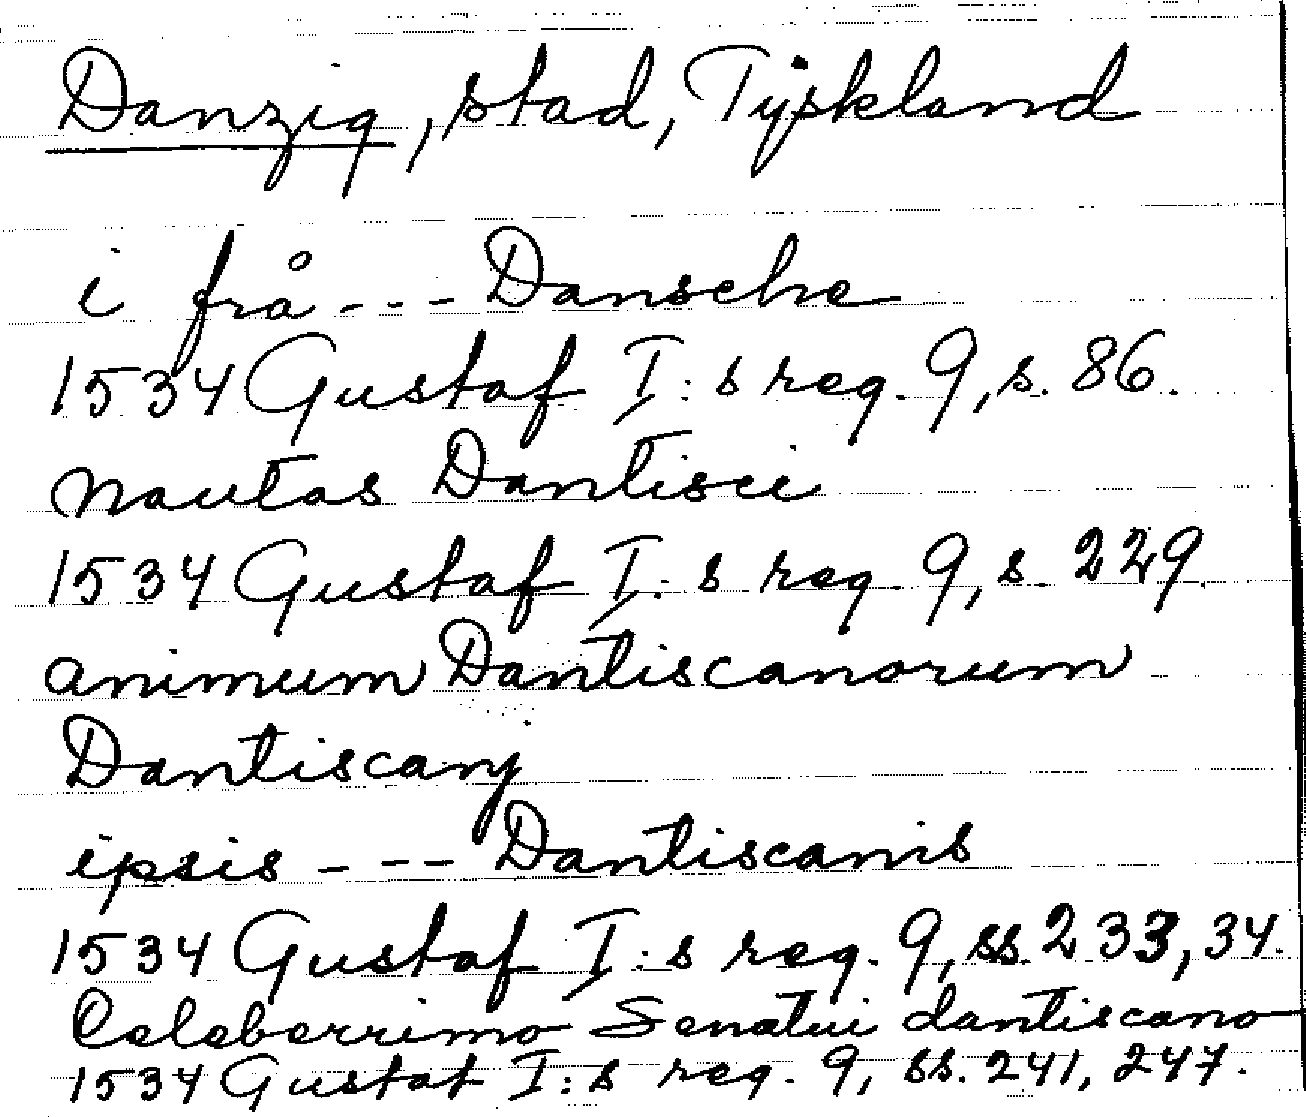 Danzig, stad, Tyskland
i frå - - - Dansche
1534 Gustaf I:s reg. 9, s. 86.
nautas Dantisci
1534 Gustaf I:s reg. 9, s. 229.
animum Dantiscanorum
Dantiscanj
ipsis - - - Dantiscanis
1534 Gustaf I:s reg. 9, ss. 233, 34.
Celeberrimo Senatui dantiscano
1534 Gustaf I:s reg. 9, ss. 241, 247.